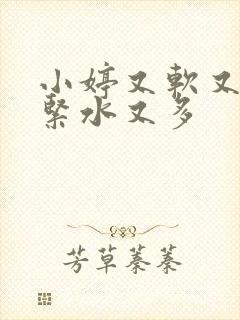 小婷又軟又
緊水又多
芳草蓁蓁